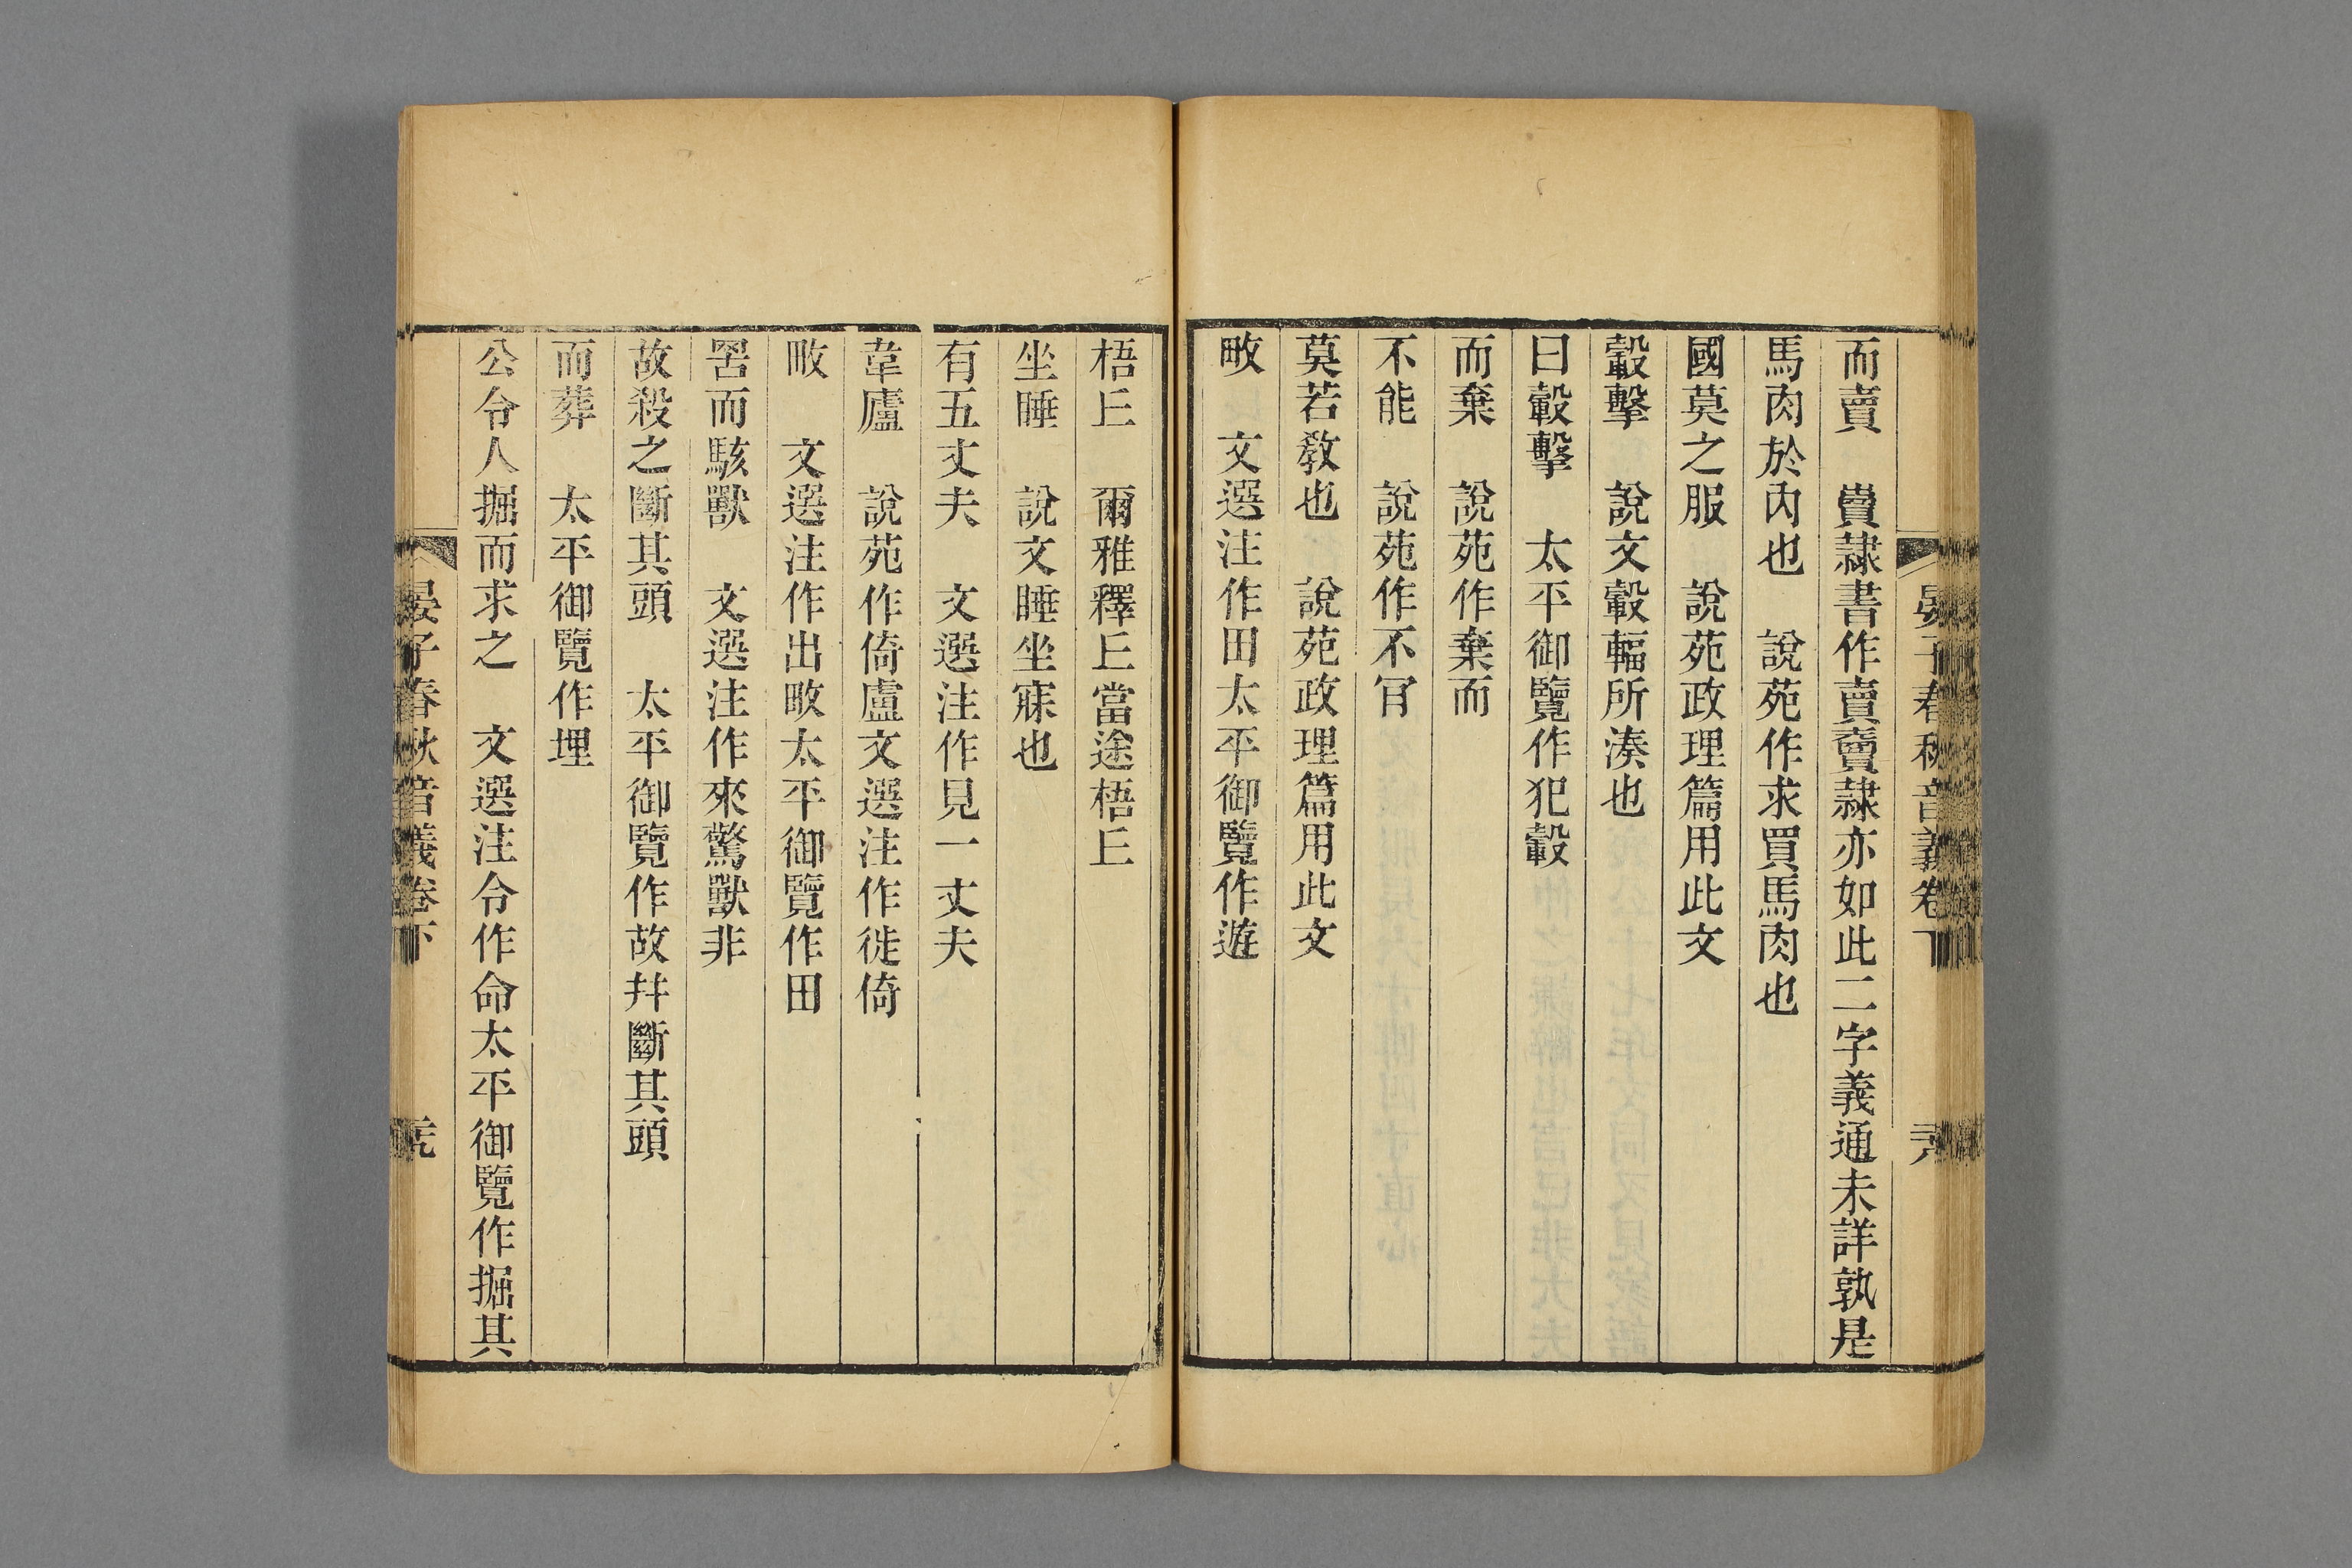 晏子春秋音義卷下
而賣　賣隷書作賣賣隷亦如此二字義通未詳孰是
馬肉於內也　說苑作求買馬肉也
國莫之服　說苑政理篇用此文
轂擊　說文轂輻所湊也
曰轂擊　太平御覽作犯轂
而棄　說苑作棄而
不能　說苑作不肎
莫若教也　說苑政理篇用此文
畋　文選注作田太平御覽作遊
梧丘　爾雅釋丘當途梧丘
坐睡　說文睡坐寐也
有五丈夫　文選注作見一丈夫
韋廬　說苑作倚廬文選注作徙倚
畋　文選注作出畋太平御覽作田
罟而駭獸　文選注作來驚獸非
故殺之斷其頭　太平御覽作故幷斷其頭
而葬　太平御覽作埋
公令人掘而求之　文選注令作命太平御覽作掘其
晏子春秋音義卷下